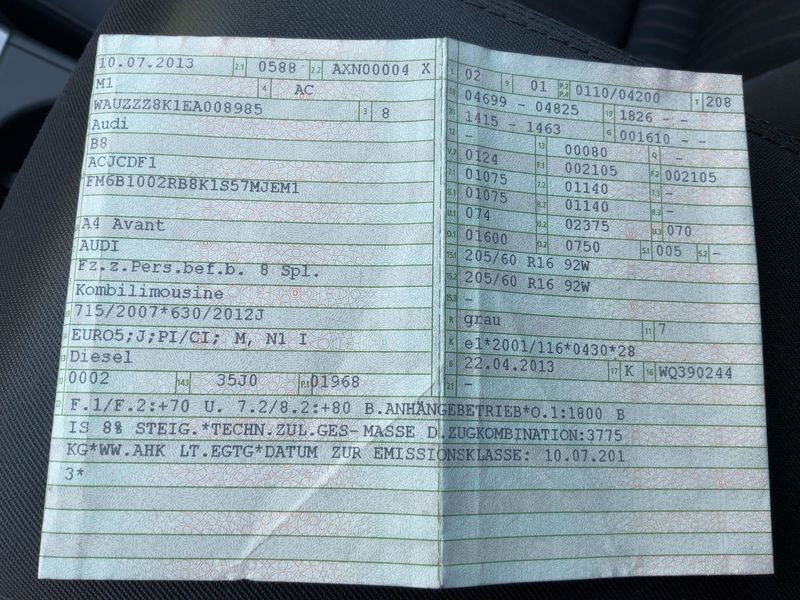 10.07.2013 2.1 0588 2.2 AXN00004 X
M1 4 AC
WAUZZZ8K1EA008985 3 8
Audi
B8
ACJCDF1
FM6B1002RB8K1S57MJEM1
A4 Avant
AUDI
Fz.z.Pers.bef.b. 8 Spl.
Kombilimousine
715/2007*630/2012J
EURO5;J;PI/CI; M, N1 I
Diesel
0002 14.1 35J0 P.1 01968
F.1/F.2:+70 U. 7.2/8.2:+80 B.ANHÄNGEBETRIEB*O.1:1800 B
IS 8% STEIG.*TECHN.ZUL.GES-MASSE D.ZUGKOMBINATION:3775
KG*WW.AHK LT.EGTG*DATUM ZUR EMISSIONSKLASSE: 10.07.201
3*
L 02 9 01 P.2 P.4 0110/04200 T 208
18 04699 - 04825 19 1826 - -
20 1415 - 1463 G 001610 - -
12 - 13 00080 Q -
V.7 0124 F.1 002105 F.2 002105
7.1 01075 7.2 01140 7.3 -
8.1 01075 8.2 01140 8.3 -
U.1 074 U.2 02375 U.3 070
O.1 01600 O.2 0750 S.1 005 S.2 -
15.1 205/60 R16 92W
15.2 205/60 R16 92W
15.3 -
R grau 11 7
K e1*2001/116*0430*28
6 22.04.2013 17 K 16 WQ390244
21 -